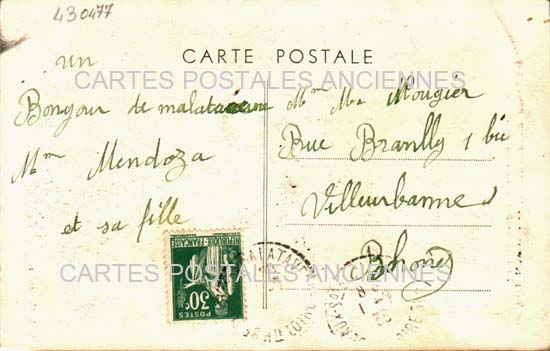 430477
CARTE POSTALE
CARTES POSTALES ANCIENNES
un
Bongour de malatavene
Mme Mendoza
et sa fille
Mme Mr Mougier
Rue Branlly 1 bis
Villeurbanne
Rhône
REPUBLIQUE FRANÇAISE
POSTES
30c
MALATAVERNE
Hte LOIRE
CARTES POSTALES ANCIENNES